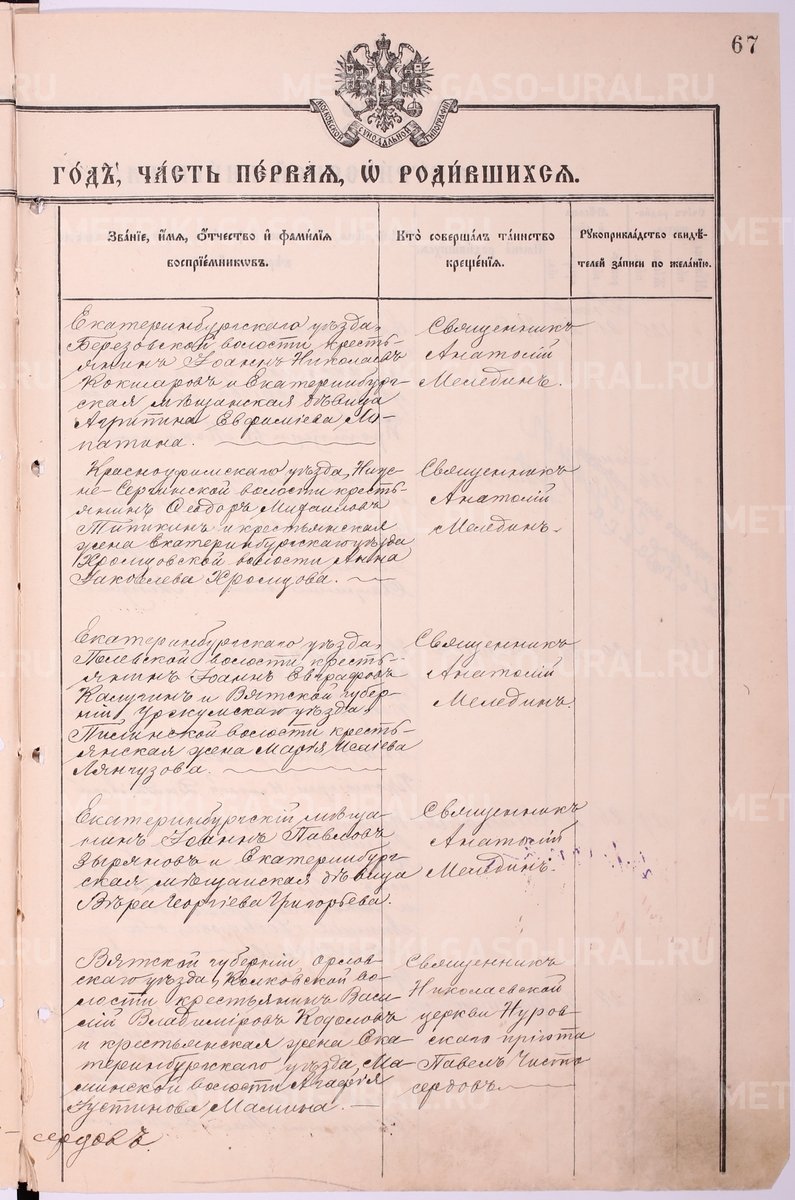 67
МОСКОВСКОЙ СѴНОДАЛЬНОЙ ТИПОГРАФІИ
ГО́ДЪ, ЧА́СТЬ ПЕ́РВАЯ, Ѡ҆ РОДИ́ВШИХСЯ.
Зва́нїе, и҆́мя, ѻ҆́тчество и҆ фами́лїя
воспрїе́мникѡвъ.
Кто̀ соверша́лъ та́инство
креще́нїя.
Рꙋкоприкла́дство свидѣ́-
телей за́писи по жела́нїю.
Екатеринбургскаго уѣзда,
Березовской волости кресть-
янинъ Іоаннъ Николаевъ
Кокшаровъ и Екатеринбург-
ская мѣщанская дѣвица
Агрипина Евфиміева Ми-
патина.
Священникъ
Анатолій
Мелединъ.
Красноуфимскаго уѣзда, Ниж-
не-Сергинской волости кресть-
янинъ Ѳеодоръ Михаиловъ
Типикинъ и крестьянская
жена Екатеринбургскаго уѣзда
Хромцовской волости Анна
Іаковлева Хромцова.
Священникъ
Анатолій
Мелединъ.
Екатеринбургскаго уѣзда,
Полевской волости кресть-
янинъ Іоаннъ Евграфовъ
Калугинъ и Вятской губер-
ніи, Уржумскаго уѣзда,
Пилинской волости кресть-
янская жена Марія Исаіева
Лянгузова.
Священникъ
Анатолій
Мелединъ.
Екатеринбургскій мѣща-
нинъ Іоаннъ Павловъ
Зыряновъ и Екатеринбург-
ская мѣщанская дѣвица
Вѣра Георгіева Григорьева.
Священникъ
Анатолій
Мелединъ.
Вятской губерніи Орлов-
скаго уѣзда, Колковской во-
лости крестьянинъ Васи-
лій Владиміровъ Кодоловъ
и крестьянская жена Ека-
теринбургскаго уѣзда, Ма-
минской волости Агафія
Іустинова Мамина.
Священникъ
Николаевской
церкви Нуров-
скаго пріюта
Павелъ Чисто
сердовъ
-сердовъ.
METRIKI.GASO-URAL.RU